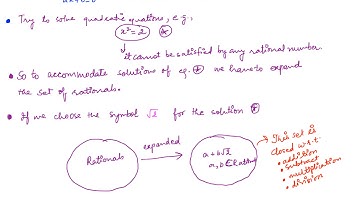 • Try to solve quadratic equations, e.g.,
x² = 2 ⊛
it cannot be satisfied by any rational number.
• So to accommodate solutions of eq. ⊛ we have to expand
the set of rationals.
• If we choose the symbol √2 for the solution ⊛
Rationals
expanded
a + b√2
a, b ∈ Rationals
This set is
closed w.r.t.
• addition
• subtract
• multiplication
• division